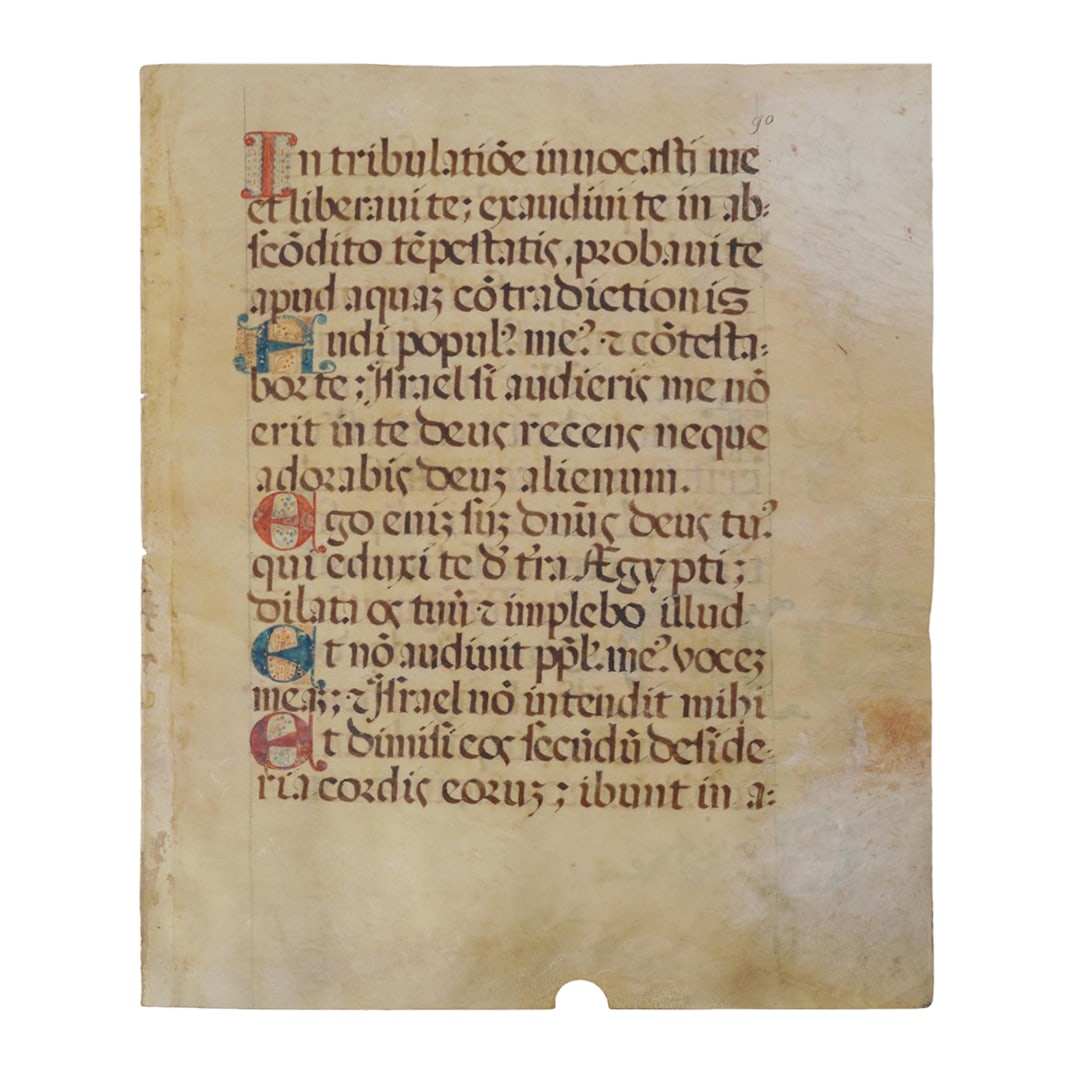 90
In tribulatiōe inuocasti me
et liberaui te; exaudiui te in ab:
scōdito tēpestatis, probaui te
apud aquaz cōtradictionis
Audi popul⁹ me⁹ ⁊ cōtesta:
bor te; Israel si audieris me nō
erit in te deus recens neque
adorabis deuz alienum.
Ego eniz suz dn̄us deus tu⁹
qui eduxi te d' tr̄a Ægypti;
dilata os tuū ⁊ implebo illud
Et nō audiuit pp̄l⁹ me⁹ vocez
meaz; ⁊ Israel nō intendit mihi
Et dimisi eos secūdū deside:
ria cordis eoruz; ibunt in a: